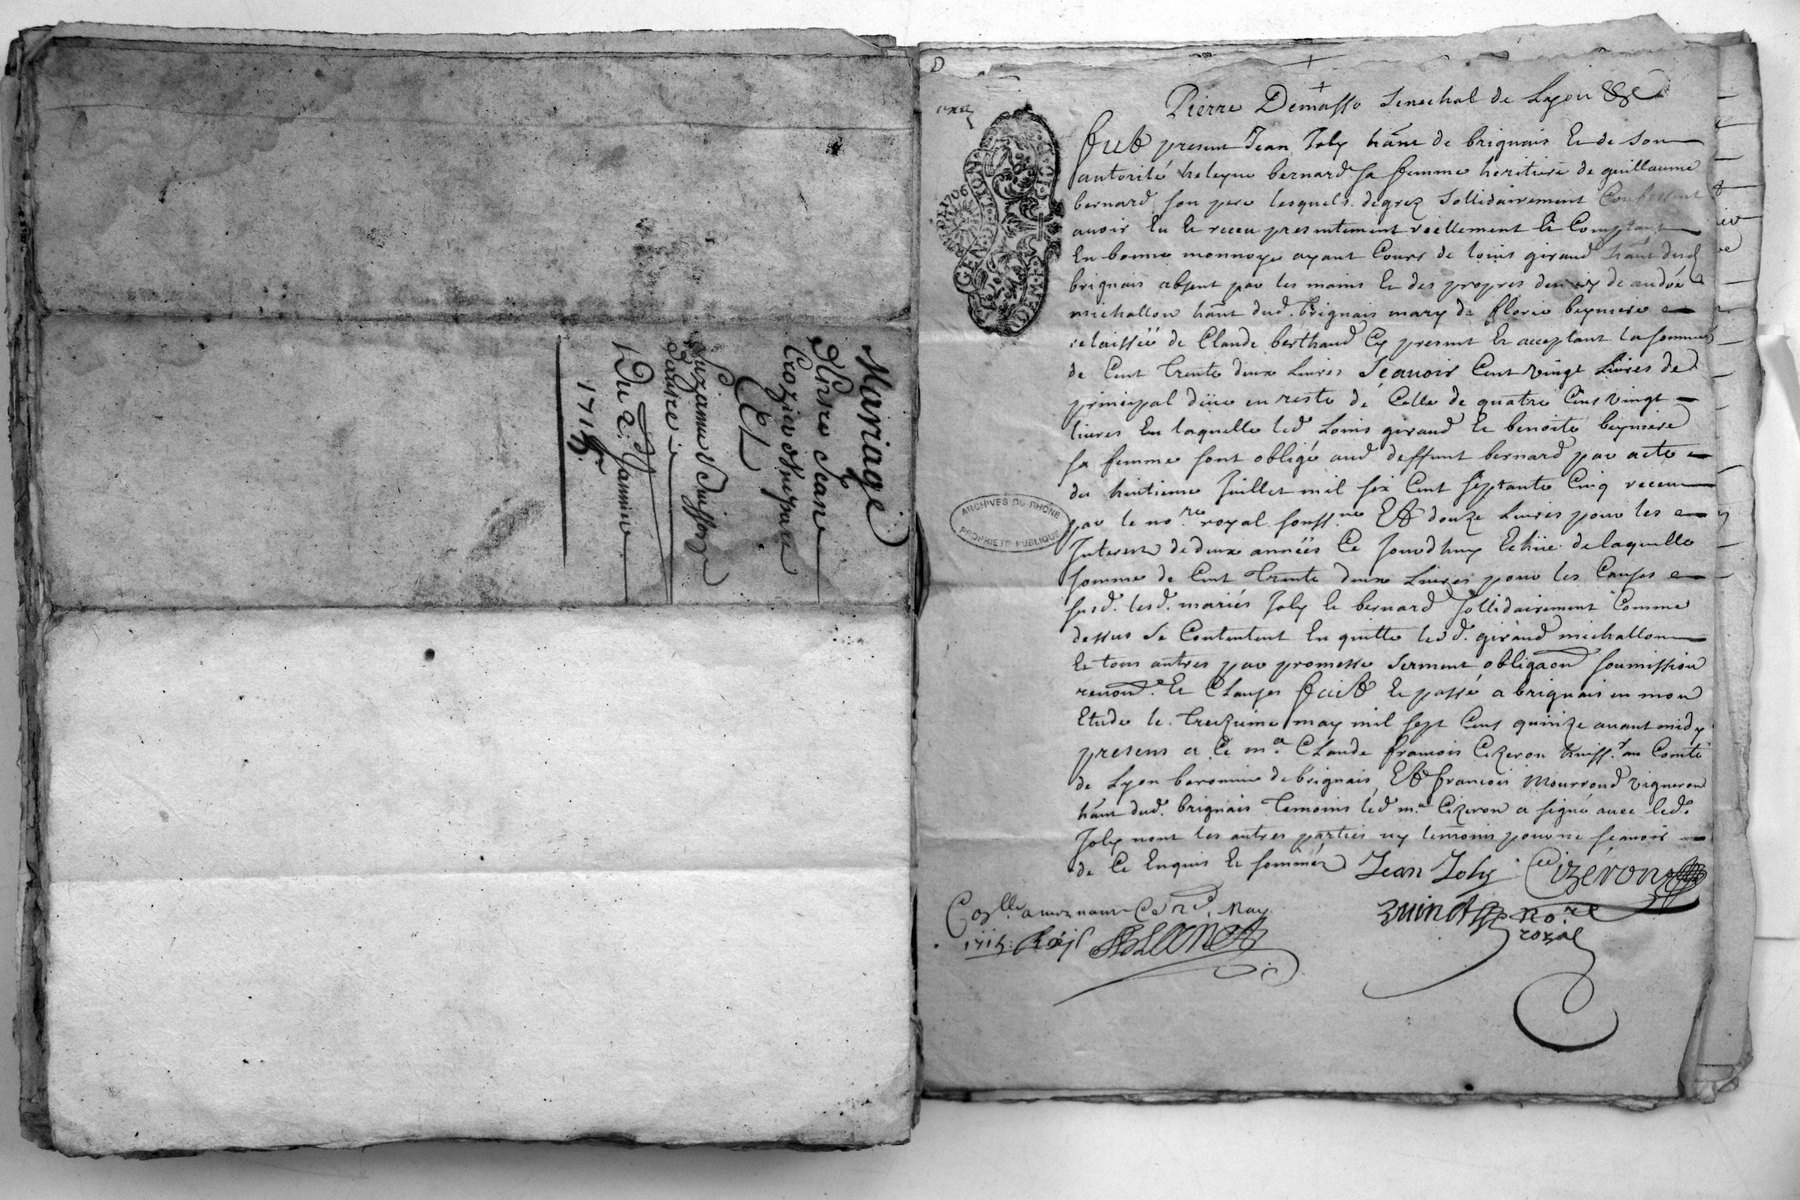 Mariage
Pierre Jean
Crozier
Et
Suzanne
Du 2e Janvier
1715
Pierre Demasso Senechal de Lyon &c
fut present Jean Joly hant de brignais Et de son
autorité heleyne bernard sa femme heritiere de guillaume
bernard son pere lesquels degrez sollidairement Confessent
avoir Eu Et receu presentement reellement Et Comptant
En bonne monnoye ayant Cours de louis giraud hant dud
brignais absent par les mains Et des propres deniers de andré
michallon hant dud. brignais mary de florie beyniere
relaissée de Claude berthaud Cy present Et acceptant la somme
de Cent Trente deux Livres Scavoir Cent vingt Livres de
principal düe en reste de Celle de quatre Cens vingt
livres En laquelle led Louis giraud Et benoite beyniere
sa femme sont obligé aud deffunt bernard par acte
du huitieme Juillet mil six Cent septante Cinq receu
par le nore royal soussne Et douze Livres pour les
Interest de deux années Ce Jourdhuy Echüe de laquelle
somme de Cent Trente deux Livres pour les Causes
susd. lesd. mariés Joly Et bernard sollidairement Comme
dessus Se Contentent En quitte lesd. giraud michallon
Et tous autres par promesse serment obligaon soumission
renon.e Et Clauses fait Et passé a brignais en mon
Etude le Treizieme may mil sept Cens quinze avant midy
presens a Ce me Claude francois Cizeron huissr au Comté
de Lyon baronnie de brignais Et francois Mourrond vigneron
hant dud. brignais Temoins led me Cizeron a signé avec led.
Joly nont les autres parties ny temoins pour ne scavoir
de Ce Enquis Et sommés Jean Joly Cizeron
nore
royal
may
1715
ARCHIVES DU RHÔNE
PROPRIÉTÉ PUBLIQUE